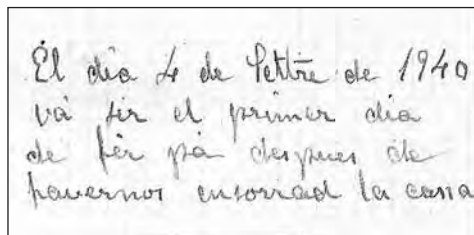 El dia 4 de Settre de 1940
và ser el primer dia
de fèr pà despues de
havernos ensorrad la cassa